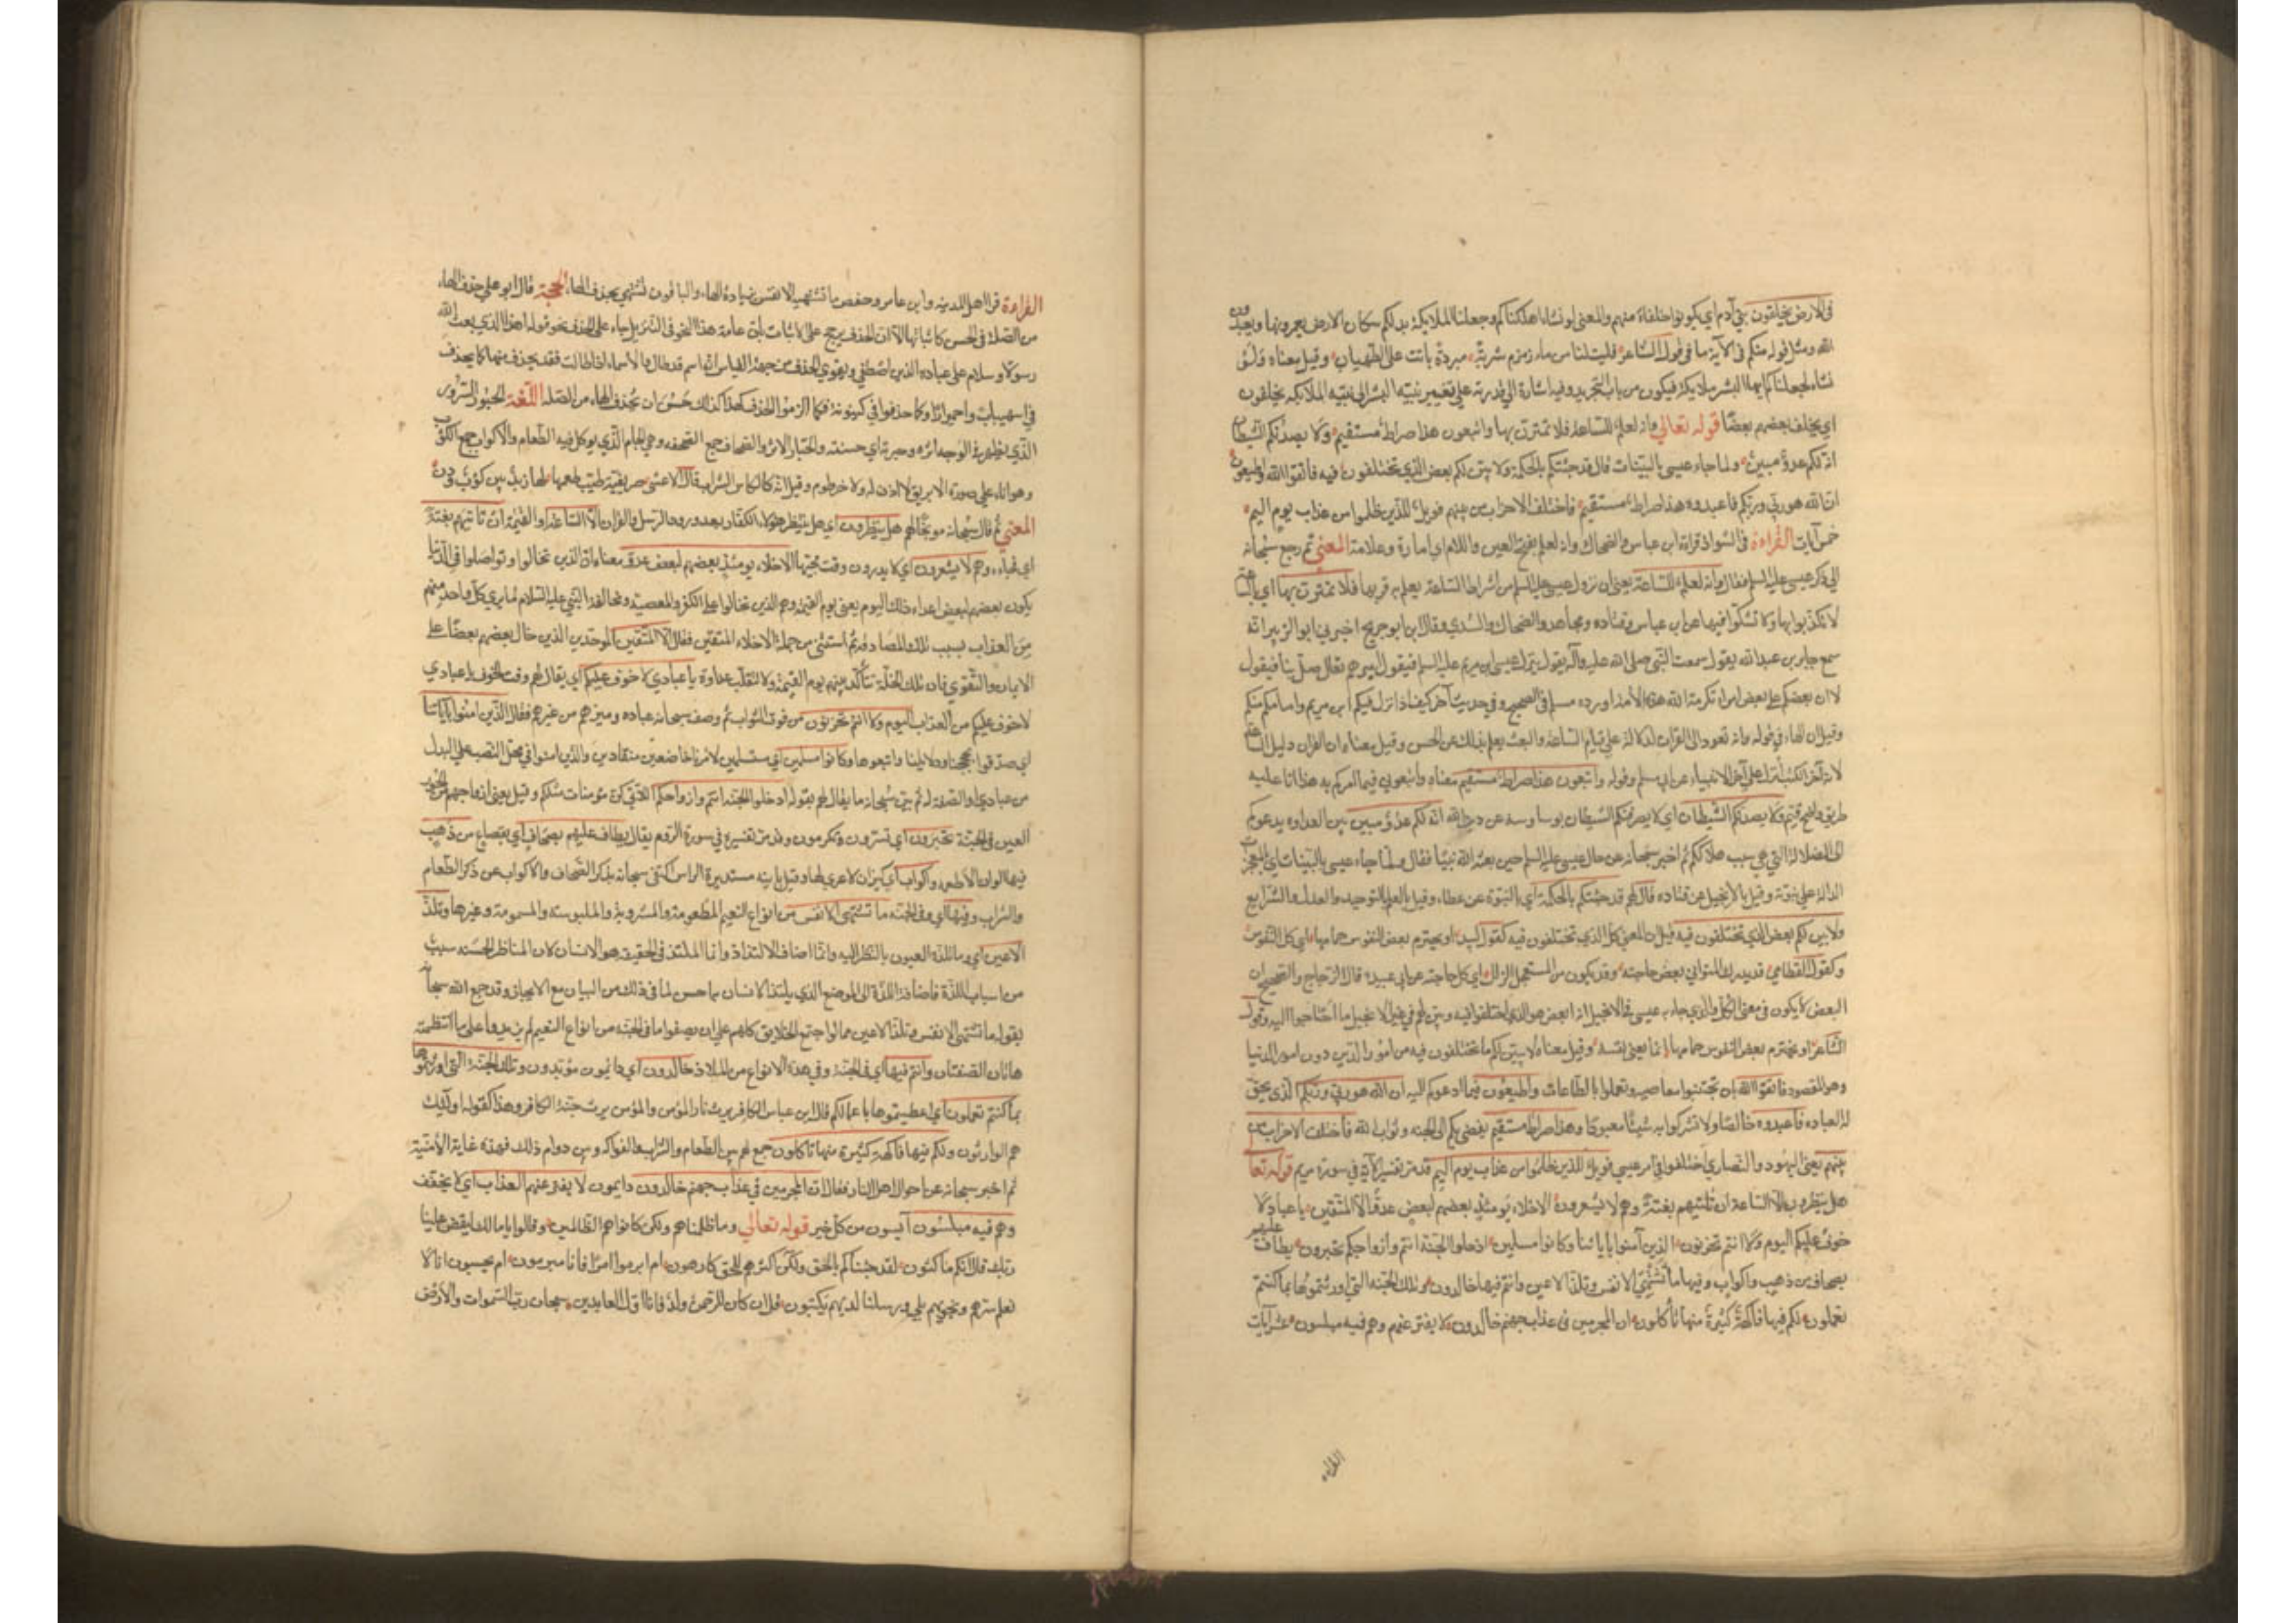 في الارض يخلفون بني آدم اي يكونوا خلفاء منهم والمعنى لو نشاء اهلكناكم وجعلنا الملائكة بدلكم سكان الارض يعمرونها ويعبدون
الله ومثل قوله منكم في الآية ما في قول الشاعر فليت لنا من ماء زمزم شربة مبردة باتت على الطهيان وقيل معناه ولو
نشاء لجعلناكم ايها البشر ملائكة فيكون من باب التجريد وفيه اشارة الى قدرته على تغيير بنية البشر الى بنية الملائكة يخلفون
اي يخلف بعضهم بعضا قوله تعالى وانه لعلم للساعة فلا تمترن بها واتبعون هذا صراط مستقيم ولا يصدنكم الشيطان
انه لكم عدو مبين ولما جاء عيسى بالبينات قال قد جئتكم بالحكمة ولابين لكم بعض الذي تختلفون فيه فاتقوا الله واطيعون
ان الله هو ربي وربكم فاعبدوه هذا صراط مستقيم فاختلف الاحزاب من بينهم فويل للذين ظلموا من عذاب يوم اليم
خمس آيات القراءة في الشواذ قراءة ابن عباس والضحاك وانه لعلم بفتح العين واللام اي امارة وعلامة المعنى ثم رجع سبحانه
الى ذكر عيسى عليه السلم فقال وانه لعلم للساعة يعني ان نزول عيسى عليه السلم من اشراط الساعة يعلم به قربها فلا تمترن بها اي بالساعة
لا تكذبوا بها ولا تشكوا فيها عن ابن عباس وقتاده ومجاهد والضحاك والسدي وقال ابن جريح اخبرني ابو الزبير انه
سمع جابر بن عبد الله يقول سمعت النبي صلى الله عليه وآله يقول ينزل عيسى ابن مريم عليه السلم فيقول اميرهم تعال صل بنا فيقول
لا ان بعضكم على بعض امراء تكرمة الله هذه الامة اورده مسلم في الصحيح وفي حديث آخر كيف اذا نزل فيكم ابن مريم وامامكم منكم
وقيل ان الهاء في قوله وانه تعود الى القران لدلالة على قيام الساعة والبعث يعلم بذلك عن الحسن وقيل معناه ان القران دليل الساعة
لانه آخر الكتب انزل على آخر الانبياء عن ابي مسلم وقوله واتبعون هذا صراط مستقيم معناه واتبعوني فيما آمركم به هذا انا عليه
طريق واضح قيم ولا يصدنكم الشيطان اي لا يصرفنكم الشيطان بوساوسه عن دين الله انه لكم عدو مبين بين العداوه يدعوكم
الى الضلالة التي هي سبب هلاككم ثم اخبر سبحانه عن حال عيسى عليه السلم حين بعثه الله نبيا فقال ولما جاء عيسى بالبينات اي بالمعجزات
الدالة على نبوته وقيل بالانجيل عن قتاده قال لهم قد جئتكم بالحكمة اي بالنبوة عن عطاء وقيل بالعلم بالتوحيد والعدل والشرايع
ولابين لكم بعض الذي تختلفون فيه قيل ان المعنى كل الذي تختلفون فيه كقول لبيد او يخترم بعض النفوس حمامها اي كل النفوس
وكقول القطامي قد يدرك المتاني بعض حاجته وقد يكون من المستعجل الزلل اي كل حاجته عن ابي عبيد قال الزجاج والصحيح ان
البعض لا يكون في معنى الكل والذي جاء به عيسى في الانجيل انما بعض الذي اختلفوا فيه وبين لهم في غير الانجيل ما احتاجوا اليه وقول
الشاعر او يخترم بعض النفوس حمامها انما يعني نفسه وقيل معناه لابين لكم ما تختلفون فيه من امور الدين دون امور الدنيا
وهو المقصود فاتقوا الله بان تجتنبوا معاصيه وتعملوا بالطاعات واطيعون فيما ادعوكم اليه ان الله هو ربي وربكم الذي يحق
له العباده فاعبدوه خالصا ولا تشركوا به شيئا معبودا وهذا صراط مستقيم يفضي بكم الى الجنة وثواب الله فاختلف الاحزاب من
بينهم يعني اليهود والنصارى اختلفوا في امر عيسى فويل للذين ظلموا من عذاب يوم اليم قد مر تفسير الآية في سورة مريم قوله تعالى
هل ينظرون الا الساعة ان تاتيهم بغتة وهم لا يشعرون الاخلاء يومئذ بعضهم لبعض عدو الا المتقين يا عباد لا
خوف عليكم اليوم ولا انتم تحزنون الذين آمنوا باياتنا وكانوا مسلمين ادخلوا الجنة انتم وازواجكم تحبرون يطاف عليهم
بصحاف من ذهب واكواب وفيها ما تشتهي الانفس وتلذ الاعين وانتم فيها خالدون وتلك الجنة التي اورثتموها بما كنتم
تعملون لكم فيها فاكهة كثيرة منها تاكلون ان المجرمين في عذاب جهنم خالدون لا يفتر عنهم وهم فيه مبلسون عشر آيات
القراءة
القراءة قرا اهل المدينه وابن عامر وحفص ما تشتهيه الانفس بزيادة الهاء والباقون تشتهي بحذف الهاء الحجة قال ابو علي حذف الهاء
من الصلة في الحسن كاثباتها الا ان الحذف يرجح على الاثبات بان عامة هذا النحو في التنزيل جاء على الحذف نحو قوله اهذا الذي بعث الله
رسولا وسلام على عباده الذين اصطفى ويقوي الحذف من جهة القياس انه اسم قد طال والاسماء اذا طالت فقد يحذف منها كما يحذف
في اشهيباب واحميرار وكما حذفوا في كينونة فكما الزموا الحذف لهذا كذلك حسن ان تحذف الهاء من الصلة اللغة الحبور السرور
الذي يظهر في الوجه اثره وحبرته اي حسنته والحبار الاثر والصحاف جمع الصحفه وهي الجام الذي يوكل فيه الطعام والاكواب جمع الكوب
وهو اناء على صورة الابريق لا اذن له ولا خرطوم وقيل انه كالكاس للشراب قال الاعشى صريفية طيب طعمها لها زبد بين كوب ودن
المعنى ثم قال سبحانه موبخا لهم هل ينظرون اي هل ينتظر هؤلاء الكفار بعد ورود الرسل والقران الا الساعة اي القيمة ان تاتيهم بغتة
اي فجاءه وهم لا يشعرون اي لا يدرون وقت مجيئها الاخلاء يومئذ بعضهم لبعض عدو معناه ان الذين تخالوا وتواصلوا في الدنيا
يكون بعضهم لبعض اعداء ذلك اليوم يعني يوم القيمة وهم الذين تخالوا على الكفر والمعصية ومخالفة النبي عليه السلام لما يرى كل واحد منهم
من العذاب بسبب تلك المصادقة ثم استثنى من جملة الاخلاء المتقين فقال الا المتقين الموحدين الذين خال بعضهم بعضا على
الايمان والتقوى فان تلك الخلة تتاكد بينهم يوم القيمة ولا تنقلب عداوة يا عبادي لا خوف عليكم اي يقال لهم وقت الخوف يا عبادي
لا خوف عليكم من العذاب اليوم ولا انتم تحزنون من فوت الثواب ثم وصف سبحانه عباده وميزهم من غيرهم فقال الذين امنوا باياتنا
اي صدقوا بحججنا ودلايلنا واتبعوها وكانوا مسلمين اي مستسلمين لامرنا خاضعين منقادين والذين امنوا في محل النصب على البدل
من عبادي او الصفة له ثم بين سبحانه ما يقال لهم بقوله ادخلوا الجنة انتم وازواجكم اللاتي كن مؤمنات مثلكم وقيل يعني ازواجهم من الحور
العين في الجنة تحبرون اي تسرون وتكرمون وقد مر تفسيره في سورة الروم يقال يطاف عليهم بصحاف اي بقصاع من ذهب
فيها الوان الاطعمه واكواب اي كيزان لا عرى لها وقيل بانيه مستديرة الراس اكتفى سبحانه بذكر الصحاف والاكواب عن ذكر الطعام
والشراب وفيها اي وفي الجنه ما تشتهي الانفس من انواع النعيم المطعومة والمشروبة والملبوسة والمشمومة وغيرها وتلذ
الاعين اي وما تلذه العيون بالنظر اليه وانما اضاف الالتذاذ وانما الملتذ في الحقيقة هو الانسان لان المناظر الحسنه سبب
من اسباب اللذة فاضافة اللذة الى الموضع الذي يلتذ الانسان به احسن لما في ذلك من البيان مع الايجاز وقد جمع الله سبحانه
بقوله ما تشتهي الانفس وتلذ الاعين ما لو اجتمع الخلايق كلهم على ان يصفوا ما في الجنه من انواع النعيم لم يزيدوا على ما انتظمته
هاتان الصفتان وانتم فيها اي في الجنة وفي هذه الانواع من الملاذ خالدون اي دائمون مؤبدون وتلك الجنة التي اورثتموها
بما كنتم تعملون اي اعطيتموها باعمالكم قال ابن عباس الكافر يرث نار المؤمن والمؤمن يرث جنة الكافر وهذا كقوله اولئك
هم الوارثون ولكم فيها فاكهة كثيرة منها تاكلون جمع لهم بين الطعام والشراب والفواكه وبين دوام ذلك فهذه غاية الامنية
ثم اخبر سبحانه عن احوال اهل النار فقال ان المجرمين في عذاب جهنم خالدون دايمون لا يفتر عنهم العذاب اي لا يخفف
وهم فيه مبلسون آيسون من كل خير قوله تعالى وما ظلمناهم ولكن كانوا هم الظالمين وقالوا يا مالك ليقض علينا
ربك قال انكم ماكثون لقد جئناكم بالحق ولكن اكثرهم للحق كارهون ام ابرموا امرا فانا مبرمون ام يحسبون انا لا
نعلم سرهم ونجويهم بلى ورسلنا لديهم يكتبون قل ان كان للرحمن ولد فانا اول العابدين سبحان رب السموات والارض